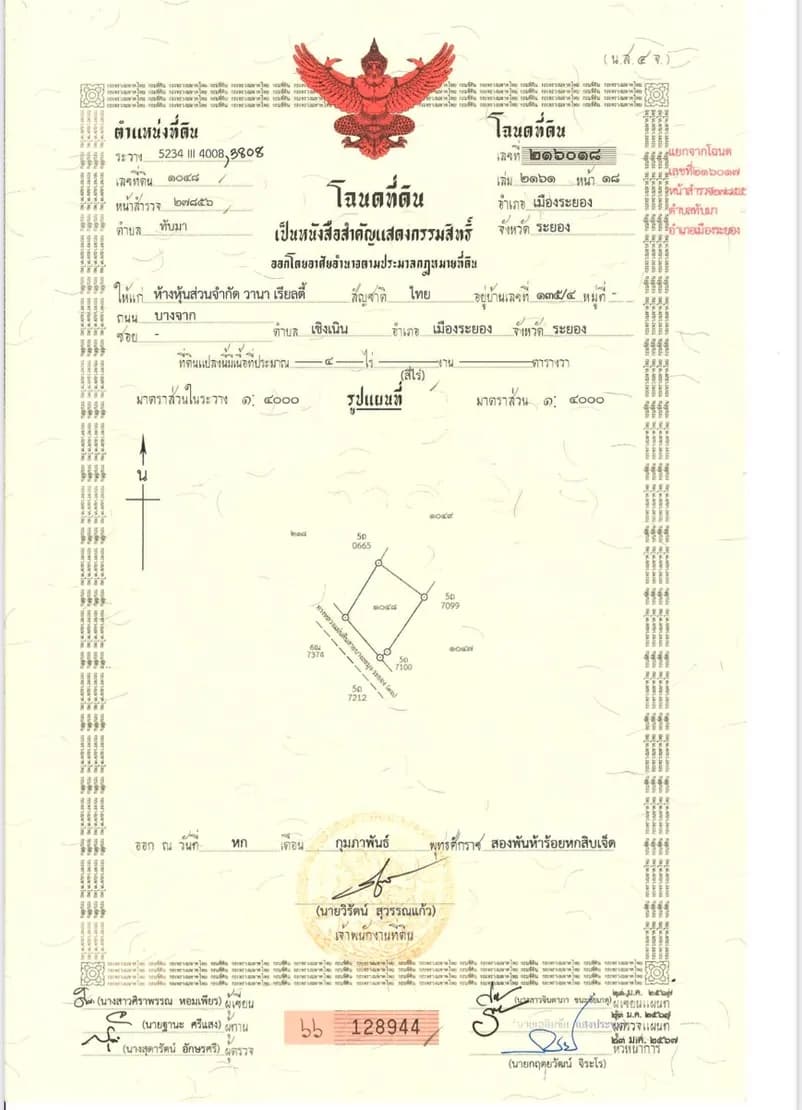 (น.ส.๔ จ.)
ตำแหน่งที่ดิน
ระวาง 5234 III 4008, 3808
เลขที่ดิน ๑๐๔๘
หน้าสำรวจ ๒๗๘๕๖
ตำบล ทับมา
โฉนดที่ดิน
เลขที่ ๒๑๖๐๑๘
เล่ม ๒๑๖๑ หน้า ๑๘
อำเภอ เมืองระยอง
จังหวัด ระยอง
แยกจากโฉนด
เลขที่๒๑๖๐๑๗
หน้าสำรวจ๒๗๘๕๕
ตำบลทับมา
อำเภอเมืองระยอง
โฉนดที่ดิน
เป็นหนังสือสำคัญแสดงกรรมสิทธิ์
ออกโดยอาศัยอำนาจตามประมวลกฎหมายที่ดิน
ให้แก่ ห้างหุ้นส่วนจำกัด วานา เรียลตี้ สัญชาติ ไทย อยู่บ้านเลขที่ ๑๓๕/๔ หมู่ที่ -
ถนน บางจาก
ซอย - ตำบล เชิงเนิน อำเภอ เมืองระยอง จังหวัด ระยอง
ที่ดินแปลงนี้มีเนื้อที่ประมาณ ๔ ไร่ งาน ตารางวา
(สี่ไร่)
มาตราส่วนในระวาง ๑: ๔๐๐๐ รูปแผนที่ มาตราส่วน ๑: ๔๐๐๐
น
๑๐๔๙
๒๑๘
5ถ
0665
๑๐๔๘
5ถ
7099
๑๐๔๗
6ณ
7374
5ถ
7100
5ถ
7212
ออก ณ วันที่ หก เดือน กุมภาพันธ์ พุทธศักราช สองพันห้าร้อยหกสิบเจ็ด
(นายวิรัตน์ สุวรรณแก้ว)
เจ้าพนักงานที่ดิน
(นางสาวศิราพรรณ หอมเพียร) ผู้เขียน
(นายฐานะ ศรีแสง) ผู้ทาน
(นางสุดารัตน์ อักษรศรี) ผู้ตรวจ
๖๖ 128944
ผู้เขียนแผนที่
ผู้ตรวจแผนที่
๒๓ ม.ค. ๒๕๖๗
หัวหน้าการ
(นายกฤตยวัฒน์ จิระโร)